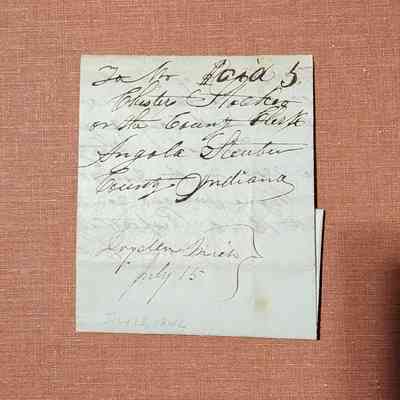 To Mr Paid 5
Chester
or the County Clerk
Angola Steuben
County Indiana
Mich
July 15